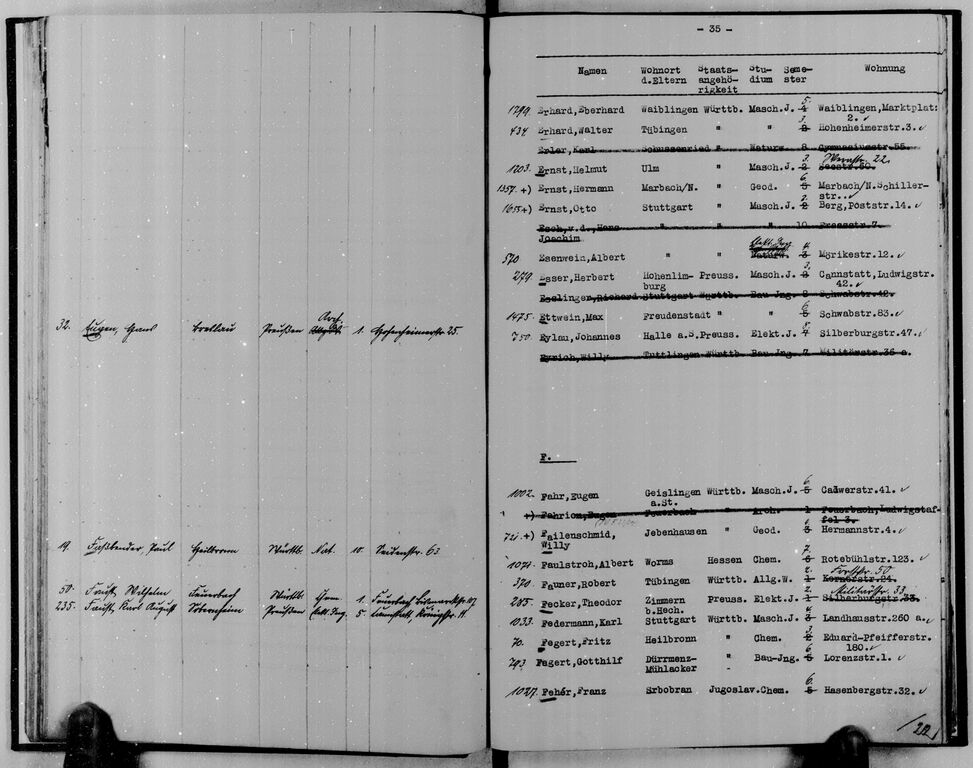 32. Eugen, Hans Breslau Preußen Arch. 1. Hohenheimerstr. 25.
19. Faßbender, Paul Heilbronn Württb. Nat. 10. Seidenstr. 63
50. Faust, Wilhelm Feuerbach Württb. Chem. 1. Feuerbach Bismarckstr. 107
235. Faust, Karl August Sobernheim Preußen Elekt. Ing. 5. Cannstatt, Königstr. 11.
- 35 -
Namen Wohnort Staats- Stu- Seme- Wohnung
d.Eltern angehö- dium ster
rigkeit
5.
1299. Erhard, Eberhard Waiblingen Württb. Masch.J. 4 Waiblingen, Marktplatz
3. 2. ✓
434 Erhard, Walter Tübingen " " 2 Hohenheimerstr.3. ✓
Erler, Karl Schussenried " Naturw. 8 Gymnasiumstr.55.
3.
1203. Ernst, Helmut Ulm " Masch.J. 2 Seestr.50. 22.
6.
1357. +) Ernst, Hermann Marbach/N. " Geod. 5 Marbach/N.Schiller-
2. str.. ✓
1655 +) Ernst, Otto Stuttgart " Masch.J. 2 Berg, Poststr.14. ✓
Esch, v.d., Hans " " " 10 Friesstr.7.
Joachim
Elekt. Ing. 4.
570 Esenwein, Albert " " 3 Mörikestr.12. ✓
3.
279 Esser, Herbert Hohenlim- Preuss. Masch.J. 2 Cannstatt, Ludwigstr.
burg 42. ✓
Esslinger, Richard Stuttgart Württb. Bau-Ing. 8 Schwabstr.42.
6
1475. Ettwein, Max Freudenstadt " " 5 Schwabstr.83. ✓
5.
750. Eylau, Johannes Halle a.S. Preuss. Elekt.J. 4 Silberburgstr.47. ✓
Eyrich, Willy Tuttlingen Württb. Bau-Ing. 7 Militärstr.36 a.
F.
6.
1002. Fahr, Eugen Geislingen Württb. Masch.J. 5 Calwerstr.41. ✓
a.St.
+) Fahrion, Eugen Feuerbach " Arch. 1 Feuerbach, Ludwigstaf-
fel 3.
721. +) Failenschmid, Jebenhausen " Geod. 3 Hermannstr.4. ✓
Willy
7.
1071. Faulstroh, Albert Worms Hessen Chem. 6 Rotebühlstr.123. ✓
2.
370. Fauner, Robert Tübingen Württb. Allg.W. 1 Kernerstr.24. 50
2. Militärstr. 33.
205. Fecker, Theodor Zimmern Preuss. Elekt.J. 1 Silberburgstr.33.
b.Hech. 4
1033. Federmann, Karl Stuttgart Württb. Masch.J. 3 Landhausstr.260 a. ✓
70. Fegert, Fritz Heilbronn " Chem. 2 Eduard-Pfeifferstr.
6. 180. ✓
793 Fegert, Gotthilf Dürrmenz- " Bau-Jng. 5 Lorenzstr.1. ✓
Mühlacker
6.
1027. Fehér, Franz Srbobran Jugoslav. Chem. 5 Hasenbergstr.32. ✓
/22